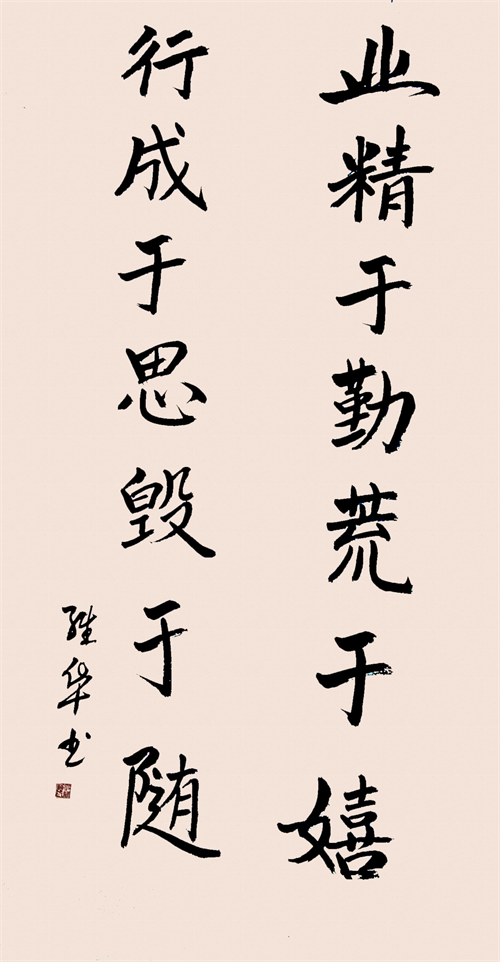 业精于勤荒于嬉
行成于思毁于随
维华书